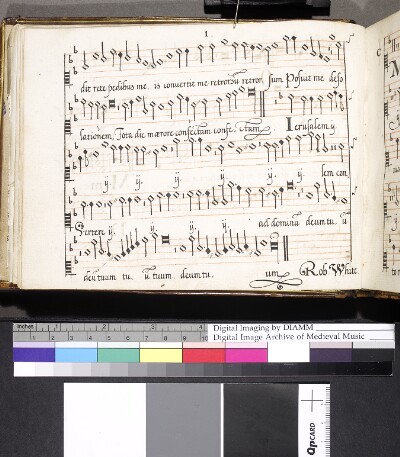 1
dit rete pedibus me is convertit me retrorsū retror sum Posuit me deso
lationem, Tota die mærore confectum confe, ctum, Ierusalem ij
ij. ij. ij. ij. ij. ij. lem con
Sertere ij ij. ij. ad dominū deum tu. ū
deū tuum tu. ū tuum. deum tu. um Rob White
C
Inches 1 2 3 4
Digital Imaging by DIAMM
Digital Image Archive of Medieval Music
1 2 3 4 5 6 7 8 9
QPCARD